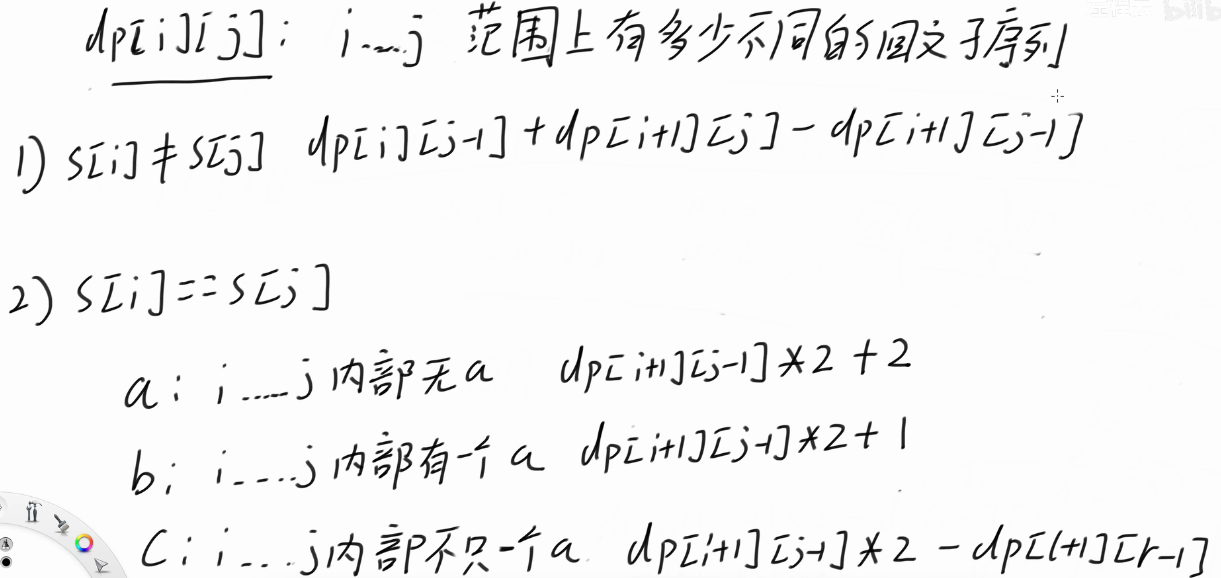 dp[i][j]: i...j 范围上有多少不同的回文子序列
1) s[i]≠s[j] dp[i][j-1]+dp[i+1][j]-dp[i+1][j-1]
2) s[i]==s[j]
a: i.....j内部无a dp[i+1][j-1]*2+2
b: i....j内部有一个a dp[i+1][j-1]*2+1
c: i...j内部不只一个a dp[i+1][j-1]*2-dp[l+1][r-1]